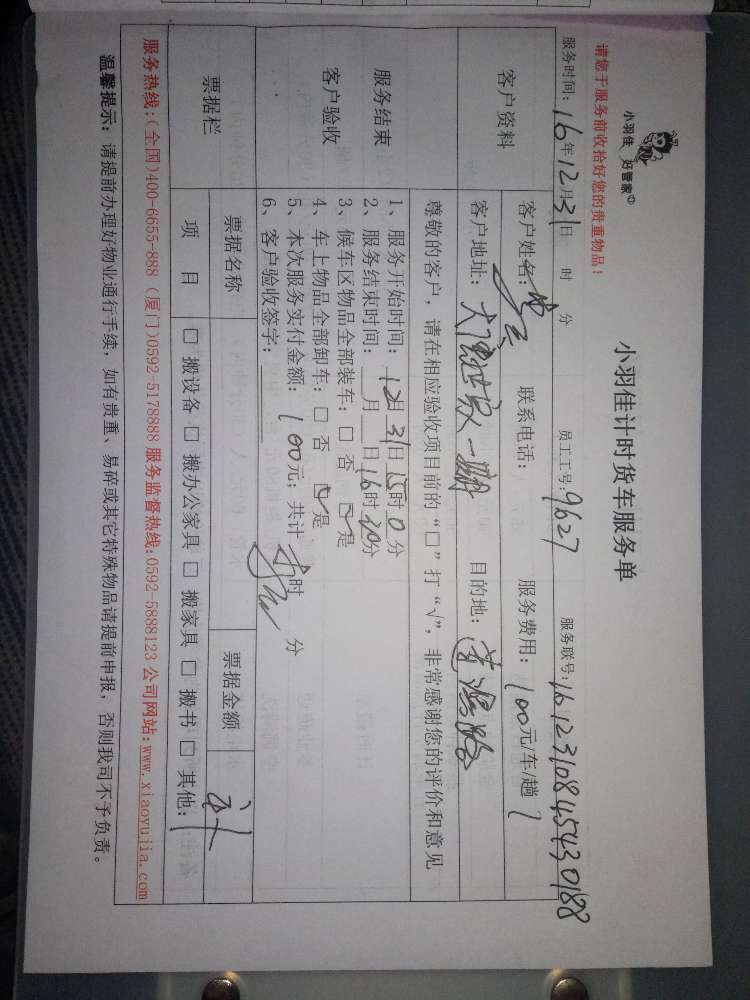 小羽佳 好管家
小羽佳计时货车服务单
请您于服务前收拾好您的贵重物品！
服务时间：16年12月31日 时 分 员工工号：9627 服务联号：161231084545430188
客户资料
客户姓名： 联系电话： 服务费用：100元/车/趟
客户地址： 目的地：莲滨路
尊敬的客户，请在相应验收项目前的“□”打“√”，非常感谢您的评价和意见
服务结束
客户验收
1、服务开始时间：12月31日15时0分
2、服务结束时间：__月__日16时30分
3、候车区物品全部装车：□ 否 ☑是
4、车上物品全部卸车：□ 否 ☑是
5、本次服务实付金额：100元；共计 时 分
6、客户验收签字：
票据栏
票据名称 票据金额
项 目 □ 搬设备 □ 搬办公家具 □ 搬家具 □ 搬书 □ 其他：
服务热线：(全国)400-6655-888 (厦门)0592-5178888 服务监督热线:0592-5888123 公司网站：www.xiaoyujia.com
温馨提示：请提前办理好物业通行手续，如有贵重、易碎或其它特殊物品请提前申报，否则我司不予负责。